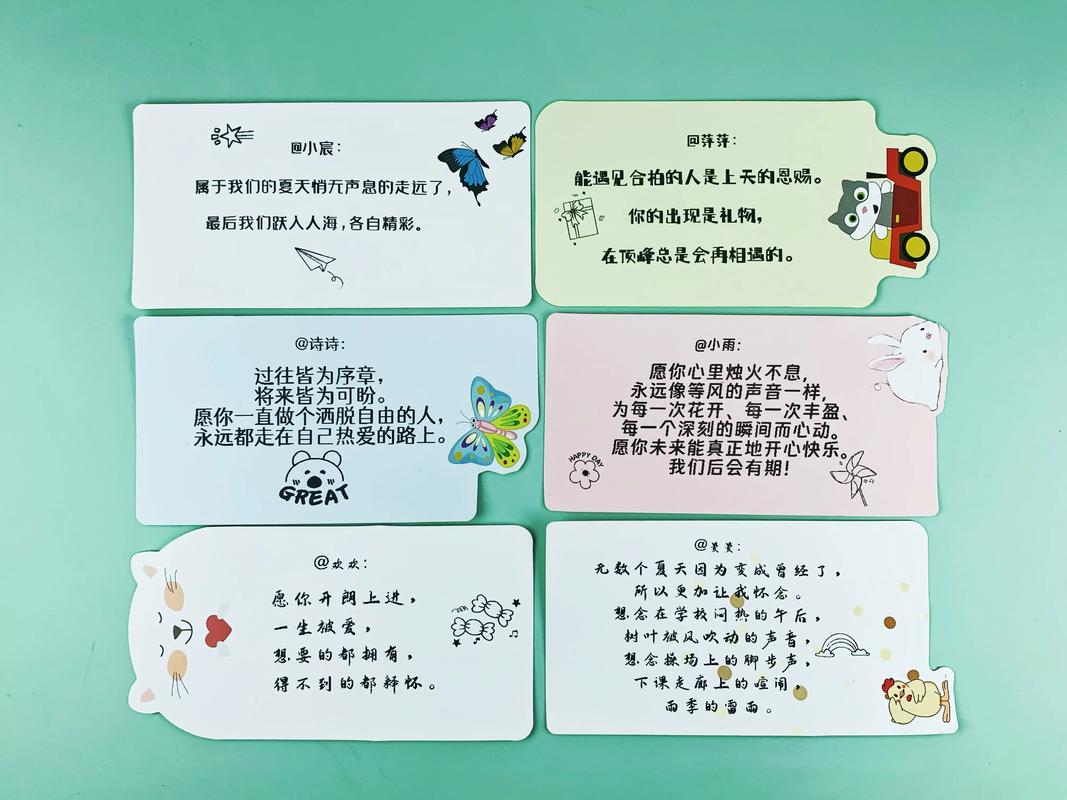 @小宸：
属于我们的夏天悄无声息的走远了，
最后我们跃入人海，各自精彩。
@萍萍：
能遇见合拍的人是上天的恩赐。
你的出现是礼物，
在顶峰总是会再相遇的。
@诗诗：
过往皆为序章，
将来皆为可盼。
愿你一直做个洒脱自由的人，
永远都走在自己热爱的路上。
GREAT
@小雨：
愿你心里烛火不息，
永远像等风的声音一样，
为每一次花开、每一次丰盈、
每一个深刻的瞬间而心动。
愿你未来能真正地开心快乐。
我们后会有期！
HAPPY DAY
@欢欢：
愿你开朗上进，
一生被爱，
想要的都拥有，
得不到的都释怀。
@爱爱：
无数个夏天因为变成曾经了，
所以更加让我怀念。
想念在学校闷热的午后，
树叶被风吹动的声音，
想念操场上的脚步声，
下课走廊上的喧闹，
雨季的雷雨。